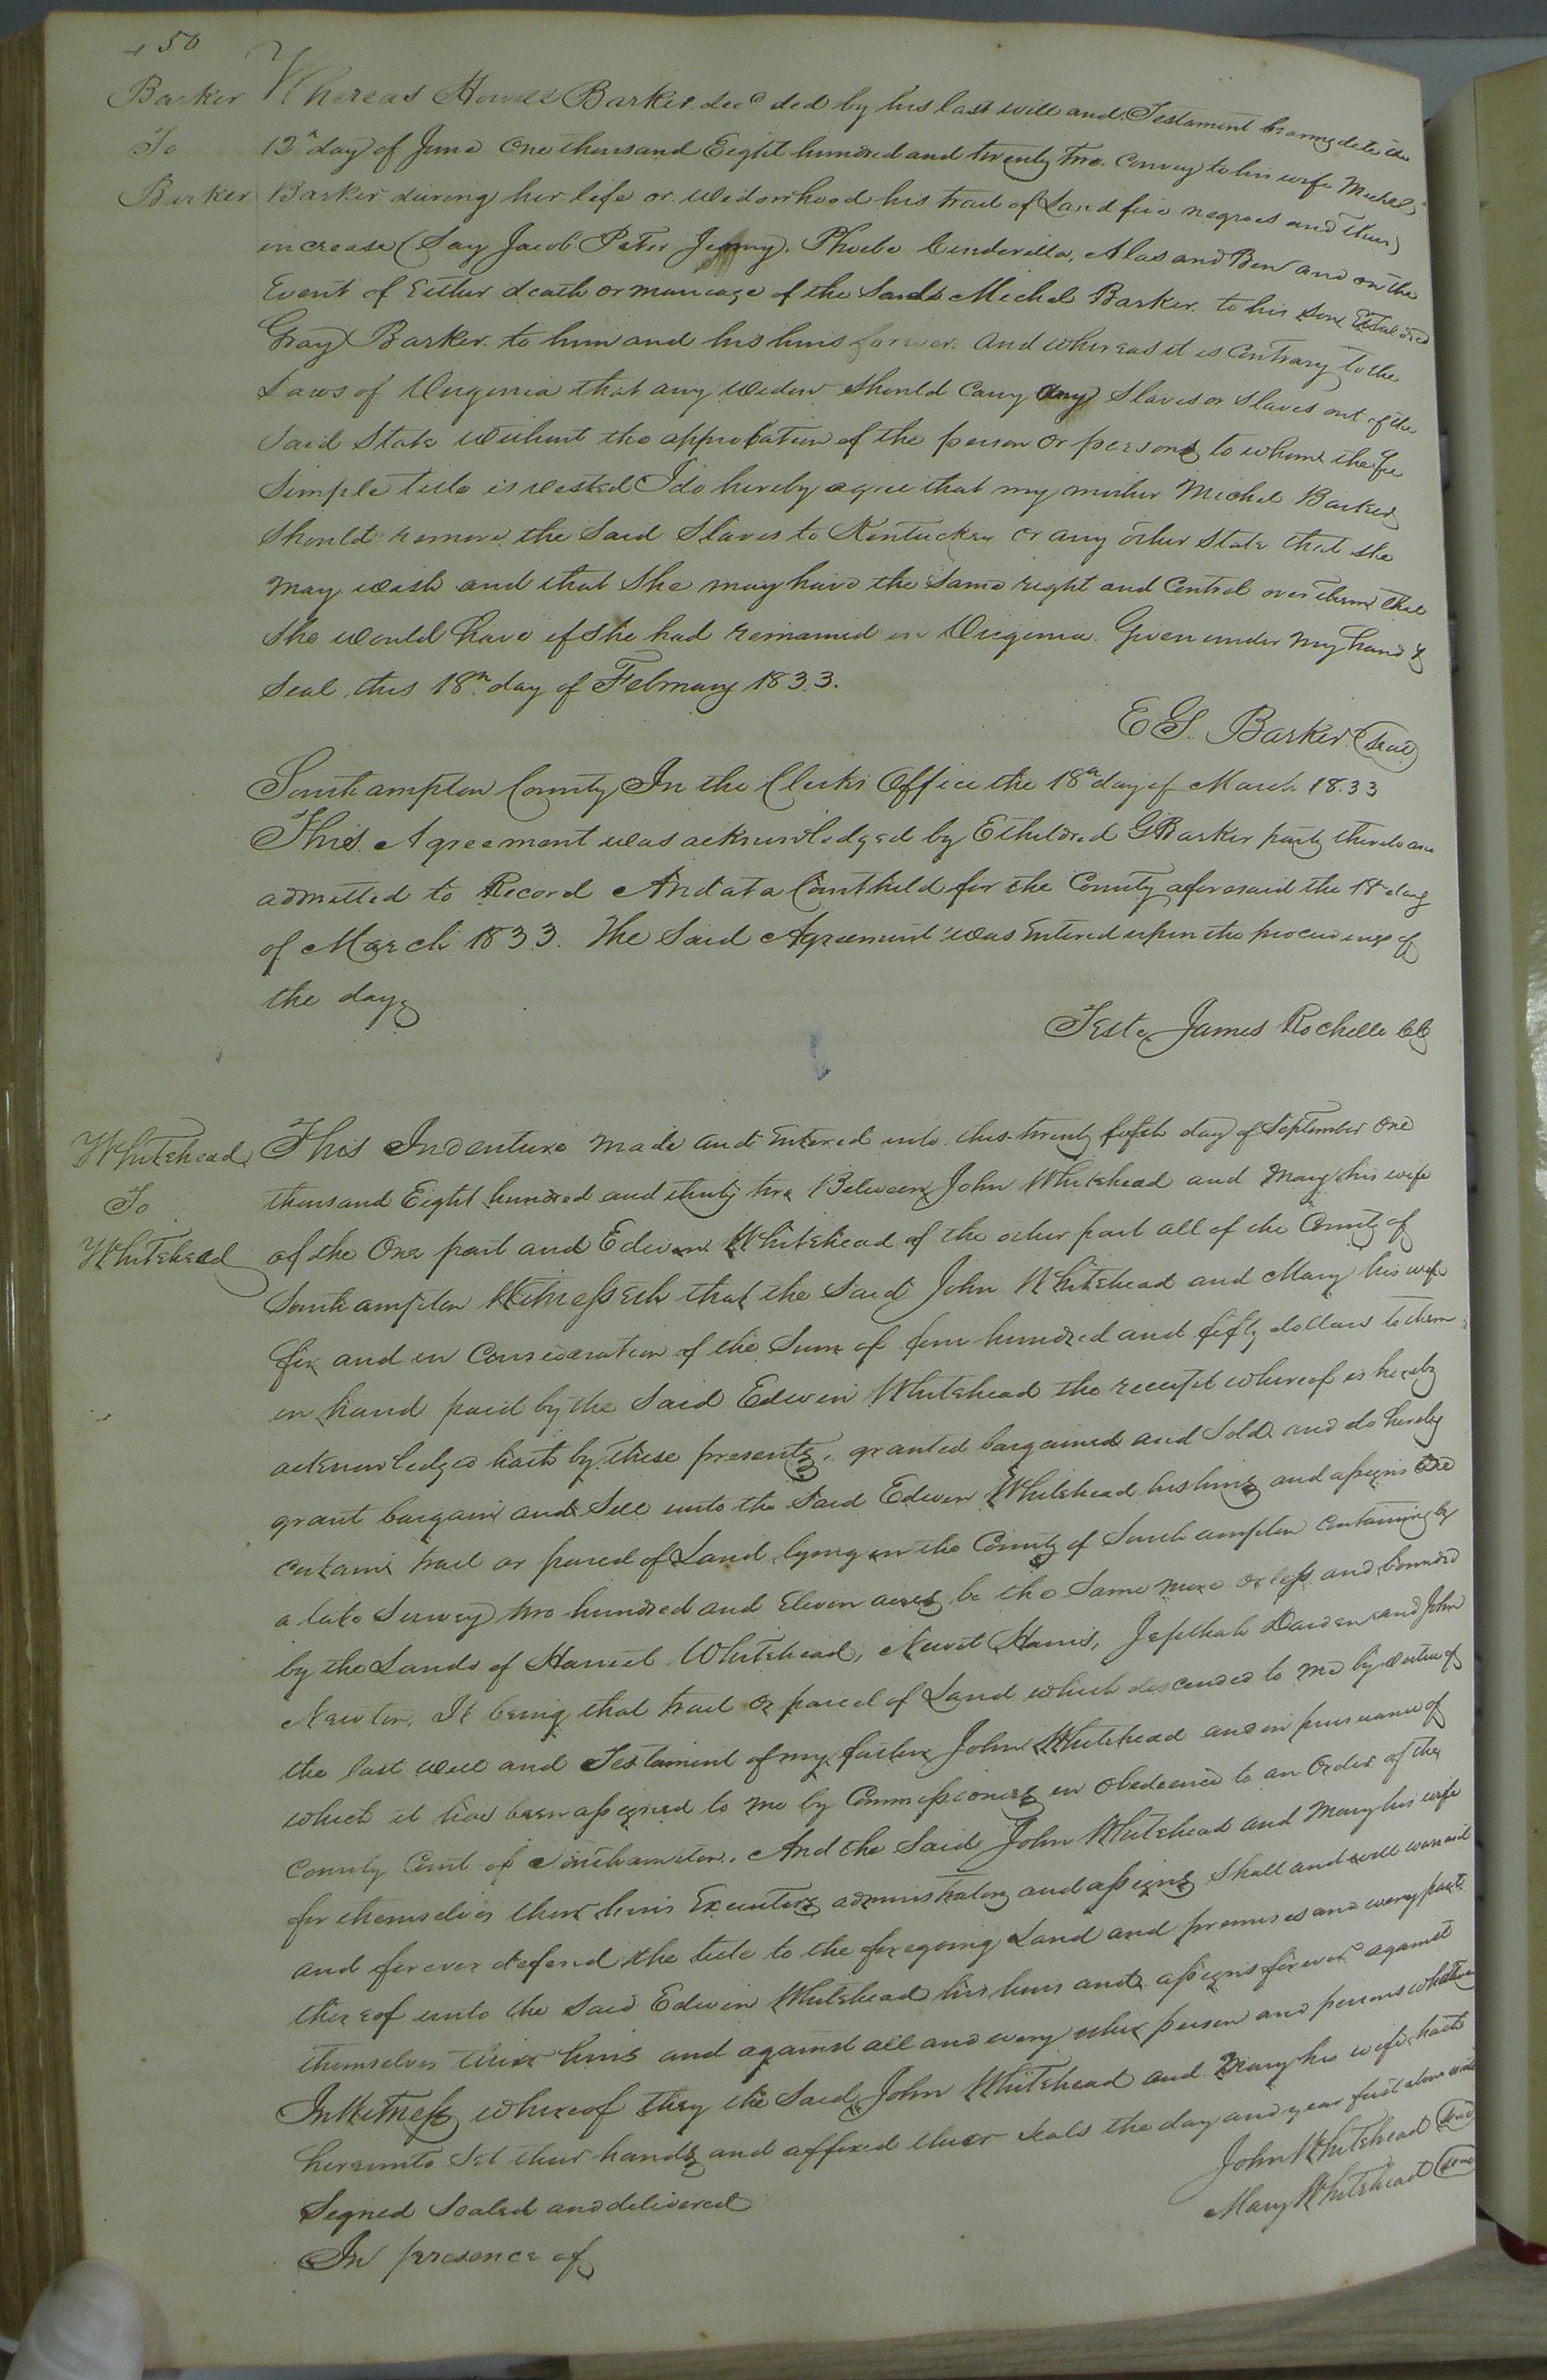 450
Barker
To
Barker
Whereas Howell Barker decd did by his last will and Testament bearing date the
13th day of June One thousand Eight hundred and twenty two. Convey to his wife Michel
Barker during her life or widowhood his tract of Land five negroes and their
increase (Say Jacob Peter Jenny. Phoebe Cinderilla, Alas and Ben and on the
Event of Either death or marriage of the Said Michel Barker to his Son Etheldred
Gray Barker to him and his heirs forever. And whereas it is Contrary to the
Laws of Virginia that any widow should Carry any Slaves or Slaves out of the
Said State without the approbation of the person or persons to whom the fee
Simple title is vested I do hereby agree that my mother Michel Barker
Should remove the Said Slaves to Kentuckey or any other State that she
may wish and that She may have the Same right and Control over them that
She would have if She had remained in Virginia. Given under my hand &
Seal this 18th day of February 1833.
E G. Barker (Seal)
Southampton County In the Clerks Office the 18th day of March 1833
This Agreement was acknowledged by Etheldred G Barker party thereto and
admitted to Record And at a Court held for the County aforesaid the 18th day
of March 1833. The Said Agreement was Entered upon the proceedings of
the day
Teste James Rochelle CC
Whitehead
To
Whitehead
This Indenture made and Entered into this twenty fifth day of September One
thousand Eight hundred and thirty two Between John Whitehead and Mary his wife
of the One part and Edwin Whitehead of the other part all of the County of
Southampton Witnesseth that the Said John Whitehead and Mary his wife
for and in Consideration of the Sum of four hundred and fifty dollars to them
in hand paid by the Said Edwin Whitehead the receipt whereof is hereby
acknowledged hath by these presents, granted bargained and Sold and do hereby
grant bargain and Sell unto the Said Edwin Whitehead his heirs and assigns One
certain tract or parcel of Land lying in the County of Southampton Containing by
a late Survey two hundred and Eleven acres be the Same more or less and bounded
by the Lands of Harriet Whitehead, Newit Harris, Jepthah Darden and John
Newton. It being that tract or parcel of Land which descended to me by virtue of
the last will and Testament of my father John Whitehead and in pursuance of
which it has been assigned to me by Commissioners in Obedience to an Order of the
County Court of Southampton. And the Said John Whitehead and Mary his wife
for themselves their heirs Executors administrators and assigns Shall and will warrant
and forever defend the title to the foregoing Land and premises and every part
thereof unto the Said Edwin Whitehead his heirs and assigns forever against
themselves their heirs and against all and every other person and persons whatever
In Witness whereof they the Said John Whitehead and Mary his wife hath
hereunto Set their hands and affixed their Seals the day and year first above
John Whitehead (Seal)
Mary Whitehead (Seal)
Signed Sealed and delivered
In presence of